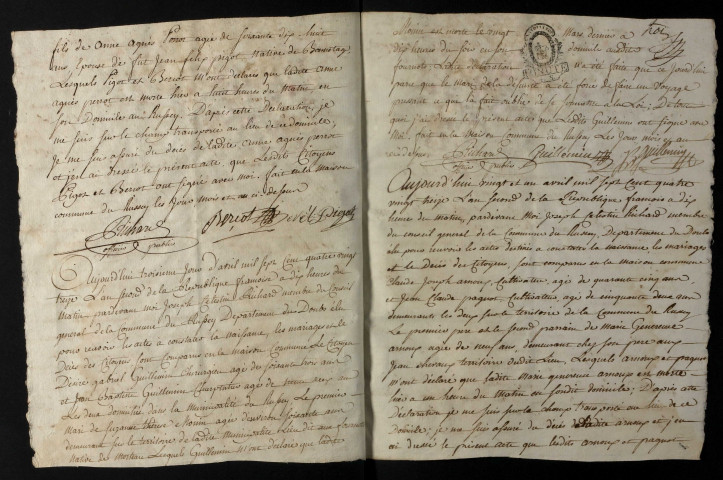 fils de Anne agnès Perrot agée de soixante dix huit
ans Epouse de fut Jean felix pigot Native de
Lesquels Pigot et Beriot M'ont déclaré que ladite anne
agnès perrot est morte hier a huit heures du Matin, en
son Domicile au Russey. D'après cette Déclaration, je
me suis sur le champ transporté au lieu de ce domicile,
Je me suis assuré du décès de ladite, anne agnès perrot
et j'en ai dressé le présent acte, que lesdits Citoyens
Pigot et Beriot ont signé avec moi. fait en la maison
commune du Russey les Jour mois et an ci dessus
Richard Beriot
officier public
Aujourd'hui troisieme Jour d'avril mil sept cent quatre vingt
treize L'an second de la Republique francoise à dix heures du
Matin pardevant moi Joseph Celestin Richard membre du Conseil
general de la commune du Russey Departement du Doubs élu
pour recevoir les actes a constater la naissance, les mariages et le
Décès des Citoyens sont Comparus en la maison Commune Le Citoyen
Denis gabriel Guillemin Chirurgien agé de soixante trois ans
et Jean Baptiste Guillemin Charpentier agé de
Les deux domiciliés dans la municipalité du Russey Le premier
Mari de Suzanne therese agée de soixante ans
demeurant sur le territoire de ladite Municipalité Lieu dit aux
native des Lesquels Guillemin M'ont déclaré que ladite
est morte le vingt Mars dernier à
dix heures du soir en son domicile audit
cette déclaration n'a été faite que ce Jourd'hui
parce que le mari de la défunte a été forcé de faire un Voyage
avant ce que la fait oublier de se soumettre a la Loi; De tout
quoi j'ai dressé le present acte que Lesdits Guillemin ont signé avec
Moi, fait en la Maison Commune du Russey Les Jour mois et an
ci dessus. Richard Guillemin Guillemin
officier public
Aujourd'hui vingt et un avril mil sept Cent quatre
vingt treize L'an second de la Republique francoise à dix
heures du matin, pardevant Moi Joseph Celestin Richard membre
du conseil general de la Commune du Russey, Departement du Doubs
élu pour recevoir les actes destinés a constater la naissance les mariages
et le Décès des Citoyens sont comparus en la maison commune
Claude Joseph arnoux Cultivateur, agé de quarante cinq ans
et Jean Claude paquot Cultivateur agé de cinquante deux ans
demeurants les deux sur le territoire de la Commune du Russey
Le premier père et le second parrain de Marie Genevieve
arnoux agée de neuf ans, demeurant chez son père aux
Jean territoire dudit Lieu, Lesquels arnoux et paquot
M'ont déclaré que ladite Marie genevieve arnoux est morte
hier à un heure du Matin en sondit domicile; D'après cette
déclaration je me suis sur le champ Transporté au lieu de ce
domicile; je me suis assuré du décès de ladite arnoux et j'en
ai dressé le présent acte que lesdits arnoux et paquot